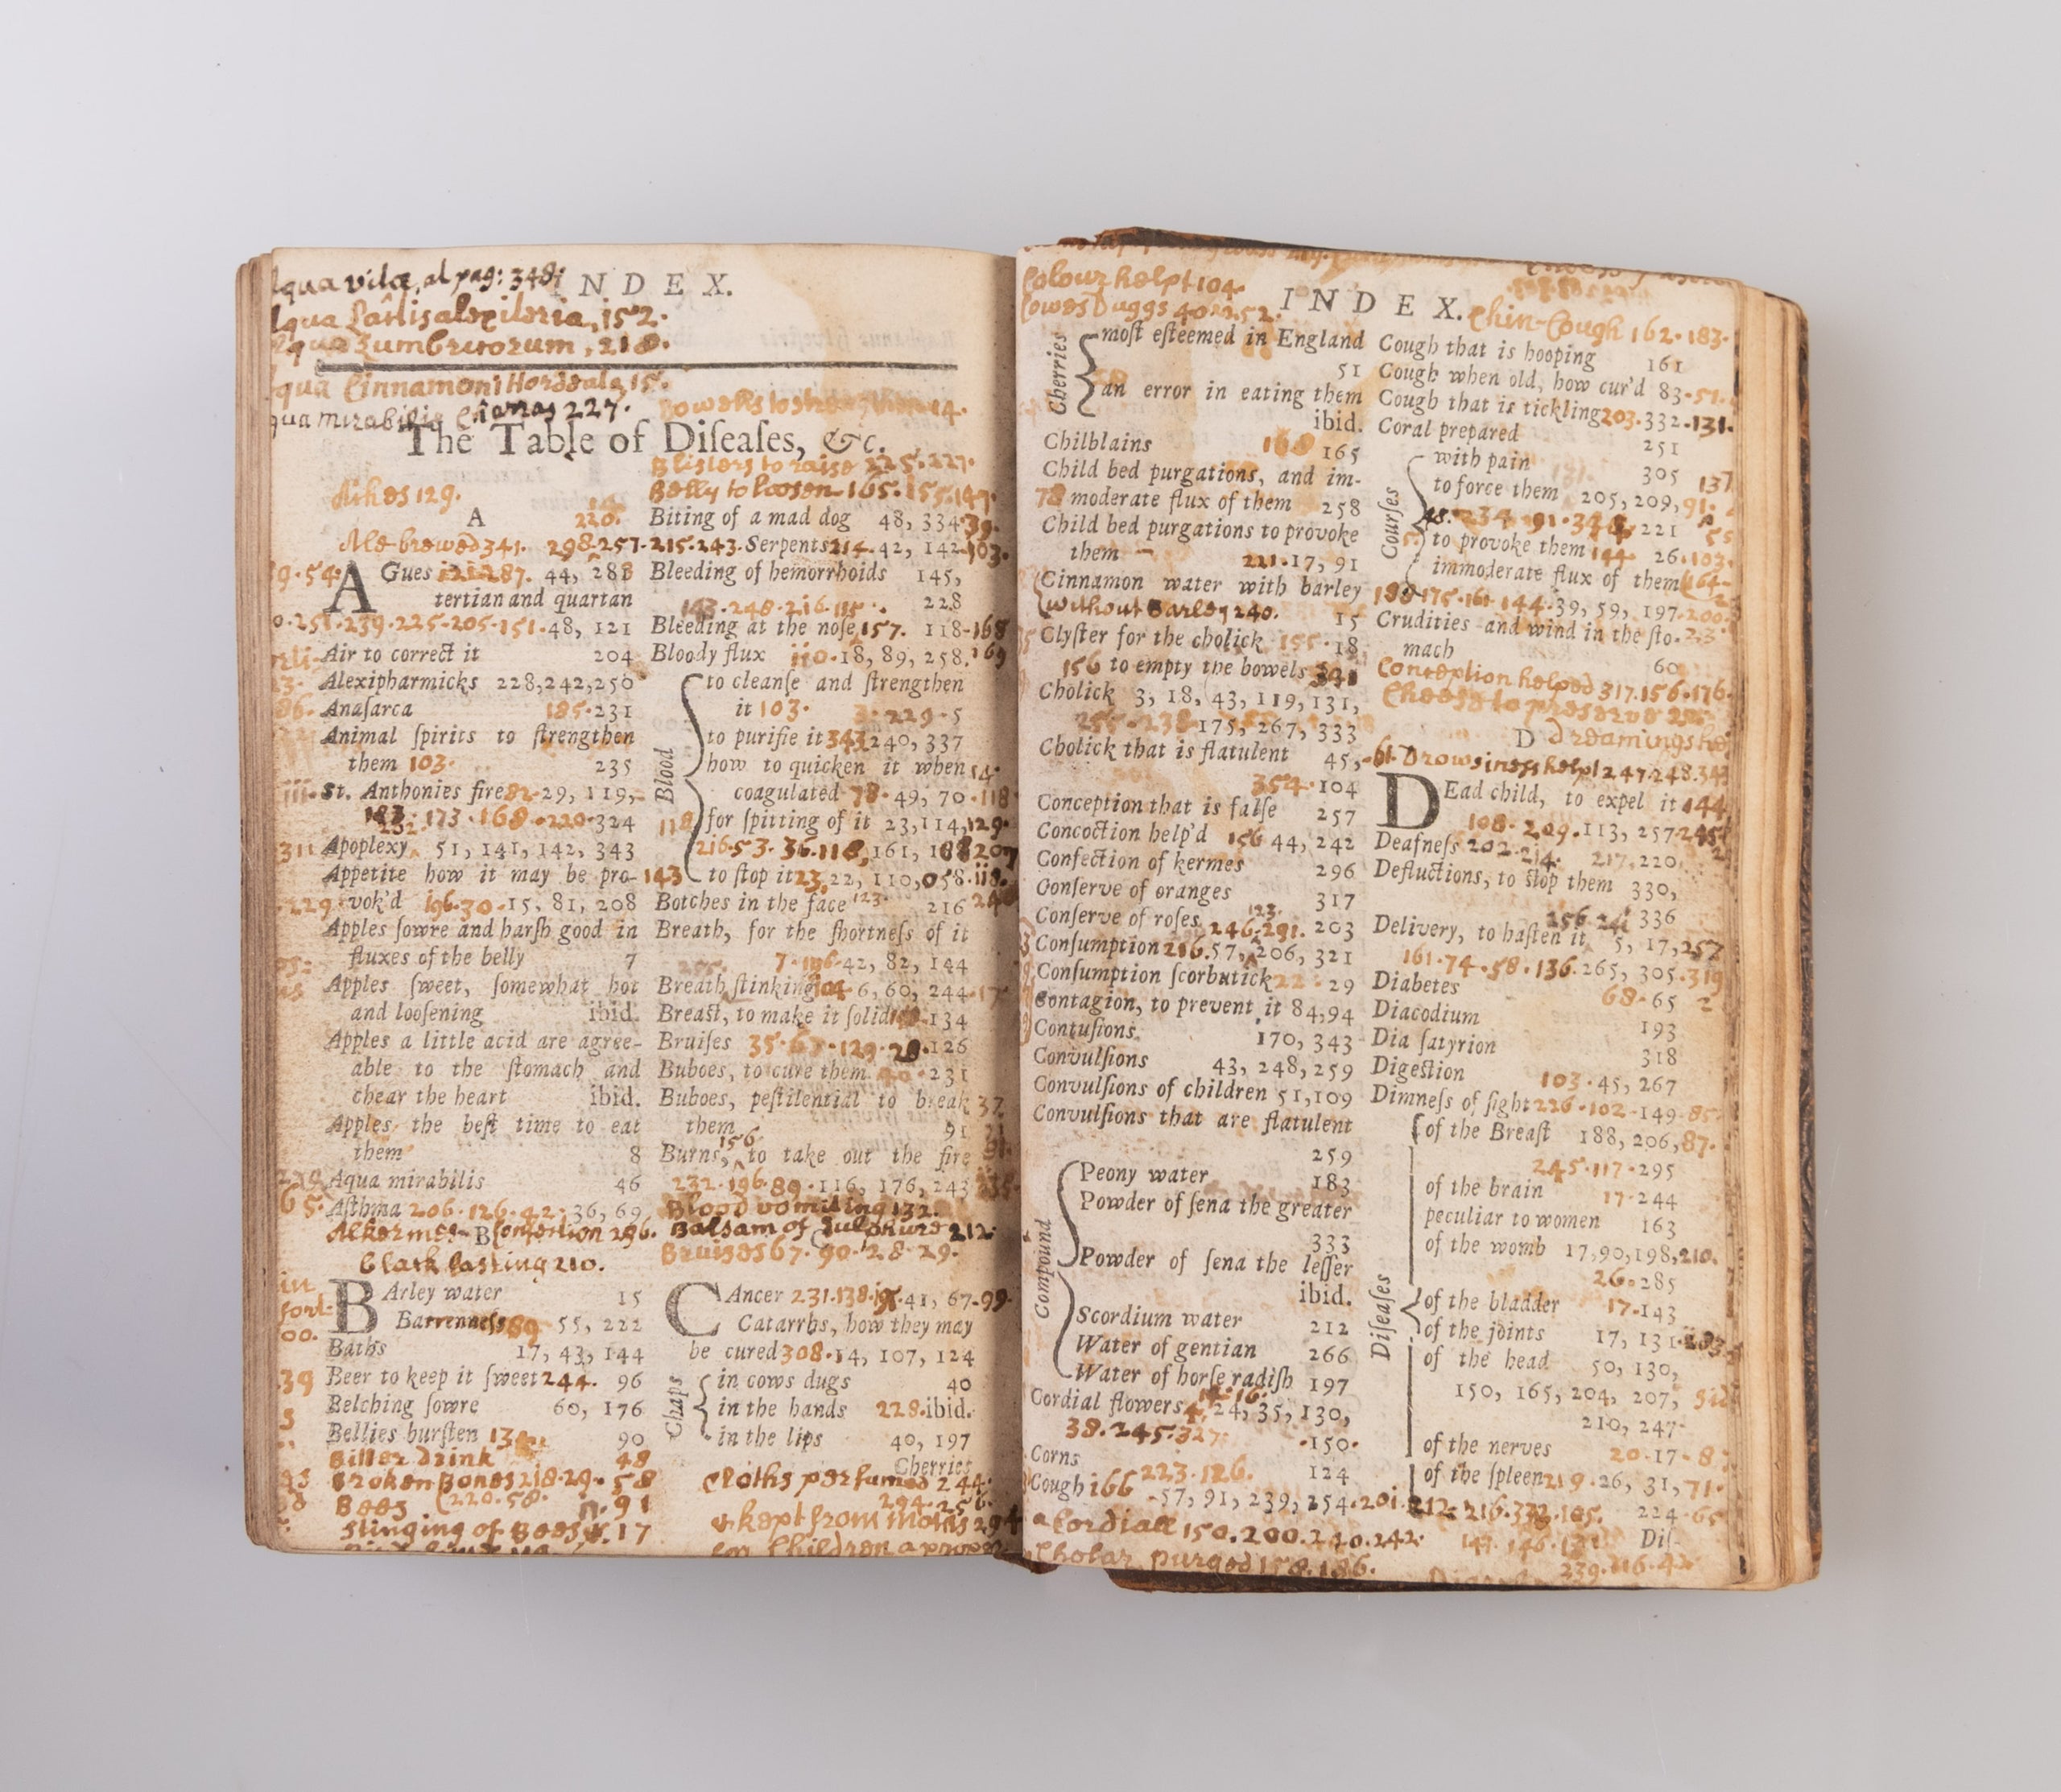 qua vitæ, al pag: 348:
INDEX.
152.
218.
qua Cinnamoni Hordeata, 15.
qua mirabilis 227.
Bowells to strengthen 14.
The Table of Diſeaſes, &c.
Akes 129.
A
220.
Ale-brewed 341. 298.257.
9.54.
AGues 287. 44, 288
tertian and quartan
0.251.239.225.205.151.48, 121
Air to correct it 204
Alexipharmicks 228,242,250
Anaſarca 185.231
Animal ſpirits to ſtrengthen
them 103. 235
St. Anthonies fire 29, 119,
183.173.168.220.324
232.
Apoplexy 51, 141, 142, 343
Appetite how it may be pro-
vok'd 196.30.15, 81, 208
Apples ſowre and harſh good in
fluxes of the belly 7
Apples ſweet, ſomewhat hot
and looſening ibid.
Apples a little acid are agree-
able to the ſtomach and
chear the heart ibid.
Apples the beſt time to eat
them 8
Aqua mirabilis 46
Aſthma 206.126.42.36, 69
Alkermes B Confection 296.
Black lasting 210.
BArley water 15
Barrenneſs 89 55, 222
Baths 17, 43, 144
Beer to keep it ſweet 244. 96
Belching ſowre 60, 176
Bellies burſten 90
Bitter drink 48
Broken Bones 218.29. 58
Bees (220.58. n. 91
stinging of Bees 17
Blisters to raise 225.227.
Belly to loosen 165.155.147.
Biting of a mad dog 48, 334.39.
215.243. Serpents 214.42, 142.103.
Bleeding of hemorrhoids 145,
143.248.216.115. 228
Bleeding at the noſe, 157. 118.168
Bloody flux 110.18, 89, 258.169
Blood
to cleanſe and ſtrengthen
it 103. 3.229.5
to purifie it 343 240, 337
how to quicken it when 14.
coagulated 78.49, 70.118
118 for ſpitting of it 23,114,129.
216.53.36.118, 161,
143 to ſtop it 23, 22, 110, 118.
Botches in the face 123. 216
Breath, for the ſhortneſs of it
7.196.42, 82, 144
Breath ſtinking 104 6, 60, 244.17
Breaſt, to make it ſolid 134
Bruiſes 35.67.129.28.126
Buboes, to cure them 40.231
Buboes, peſtilential to break 37
them 91
156
Burns, to take out the fire
232.196.89.116, 176, 243
Blood vomiting 132.
Balsam of Sulphure 212.
Bruises 67.90.28.29.
CAncer 231.138. 41, 67.99.
Catarrhs, how they may
be cured 308.14, 107, 124
Chaps
in cows dugs 40
in the hands 228.ibid.
in the lips 40, 197
Cherries
Cloths perfumed 244.
294.256.
& kept from moths 294
for Children
Colour helpt 104.
Cowes Duggs 40
INDEX.
Chin-Cough 162.183.
Cherries
moſt eſteemed in England
51
an error in eating them
ibid.
Chilblains 168 165
Child bed purgations, and im-
78 moderate flux of them 258
Child bed purgations to provoke
them 221.17, 91
Cinnamon water with barley
(without Barley 240. 15
Clyſter for the cholick 155.18
156 to empty the bowels 341
Cholick 3, 18, 43, 119, 131,
175, 267, 333
Cholick that is flatulent 45,
354.104
Conception that is falſe 257
Concoction help'd 156 44, 242
Confection of kermes 296
Conſerve of oranges 317
123.
Conſerve of roſes 246.291. 203
Conſumption 216.57, 206, 321
Conſumption ſcorbutick 22. 29
Contagion, to prevent it 84,94
Contuſions 170, 343
Convulſions 43, 248, 259
Convulſions of children 51,109
Convulſions that are flatulent
259
Compound
Peony water 183
Powder of ſena the greater
333
Powder of ſena the leſſer
ibid.
Scordium water 212
Water of gentian 266
Water of horſe radiſh 197
12.16.
Cordial flowers 4, 24, 35, 130,
38.245.327. .150.
Corns 223.126. 124
Cough 166 57, 91, 239, 254.201.212.216.332.105.
a Cordiall 150.200.240.242.
Cholar purged 158.186.
Cough that is hooping 161
Cough when old, how cur'd 83.51.
Cough that is tickling 203.332.131.
Coral prepared 251
Courſes
with pain 305 137
to force them 205, 209, 91.
48.234.291.348, 221
to provoke them 144. 26.103.
immoderate flux of them 164.
198.175.161.144.39, 59, 197.200.
Crudities and wind in the ſto-
mach 60
Conception helped 317.156.176.
Cheese to preserve
D
61. Drowsiness helpt 247.248.343
DEad child, to expel it 144
108.209.113, 257.245
Deafneſs 202.214. 217, 220
Defluctions, to ſtop them 330,
256.241 336
Delivery, to haſten it 5, 17,257
161.74.58.136.265, 305.319
Diabetes 68.65
Diacodium 193
Dia ſatyrion 318
Digeſtion 103.45, 267
Dimneſs of ſight 226.102.149.85
Diſeaſes
of the Breaſt 188, 206,87.
245.117.295
of the brain 17.244
peculiar to women 163
of the womb 17,90,198,210.
26.285
of the bladder 17.143
of the joints 17, 131.203
of the head 50, 130,
150, 165, 204, 207,
210, 247
of the nerves 20.17.8
of the ſpleen 219.26, 31,71.
224.65
147.146.121 Diſ-
239.216.42